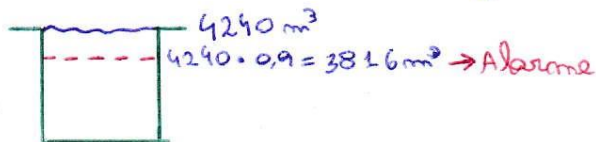 4240 m³
4240 • 0,9 = 3816 m³ → Alarme